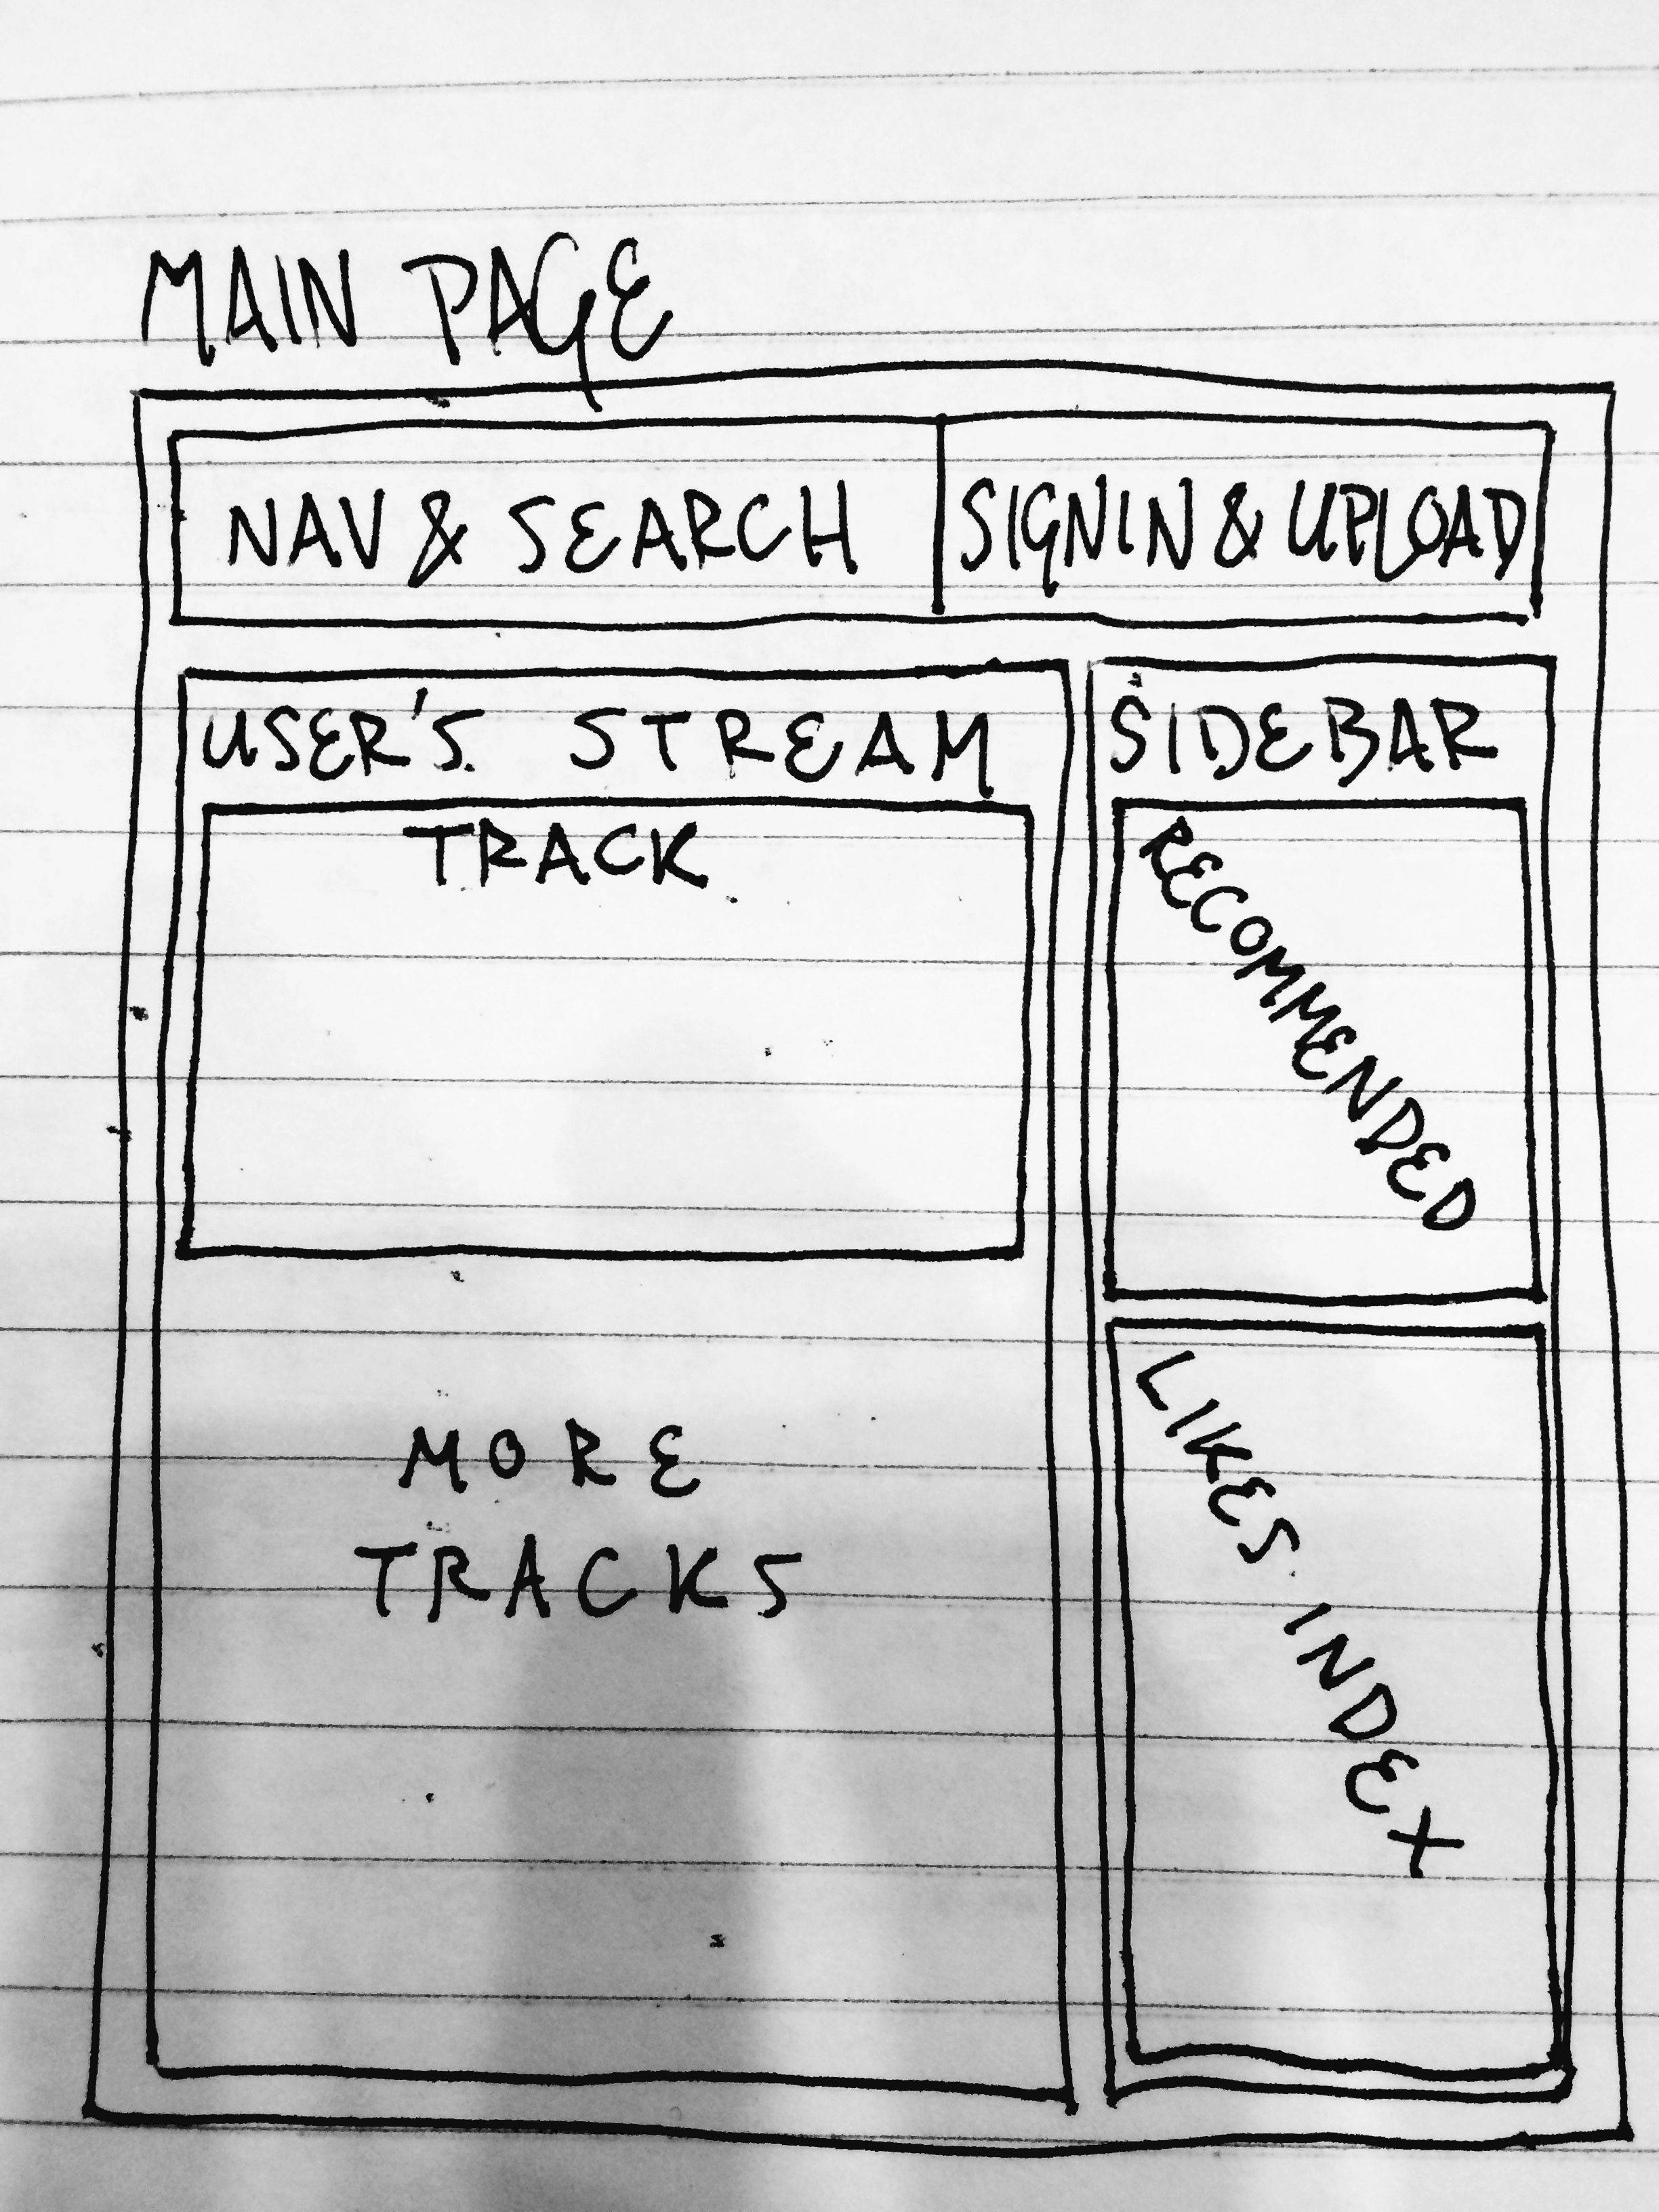 MAIN PAGE
NAV & SEARCH
SIGNIN & UPLOAD
USER'S STREAM
TRACK
MORE
TRACKS
SIDEBAR
RECOMMENDED
LIKES INDEX